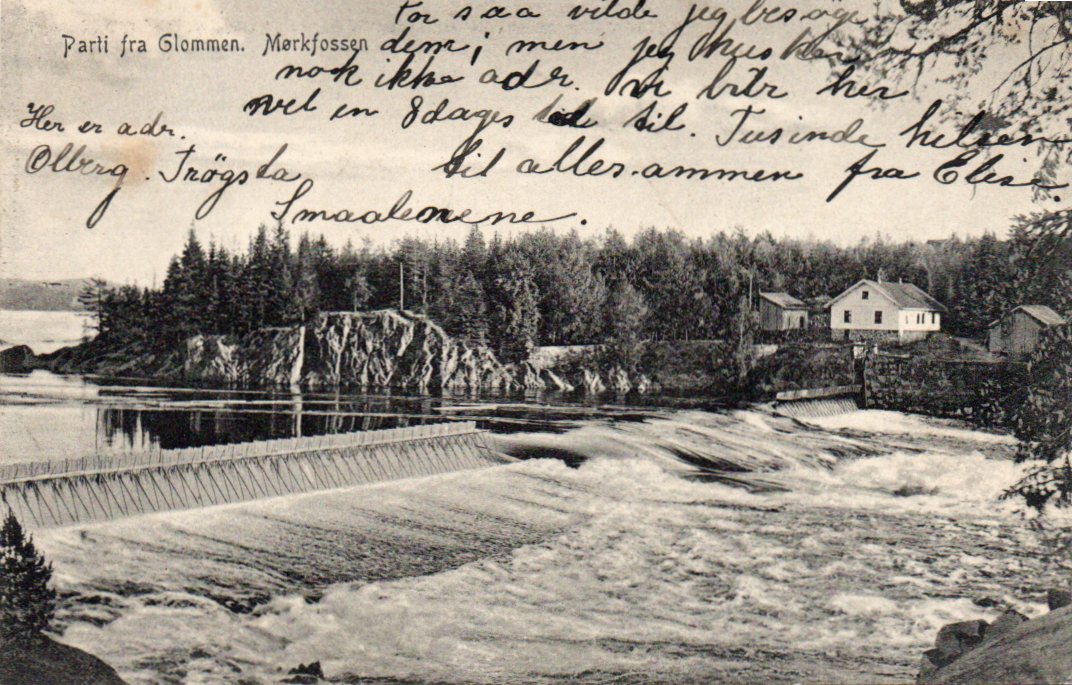 Parti fra Glommen. Mørkfossen
For saa vilde jeg besøge
dem; men jeg huske
nok ikke adr. Vi blir her
vel en 8dages tid til. Tusinde helsen
til allesammen fra Elise.
Her er adr.
Olberg. Trögsta
Smaalenene.